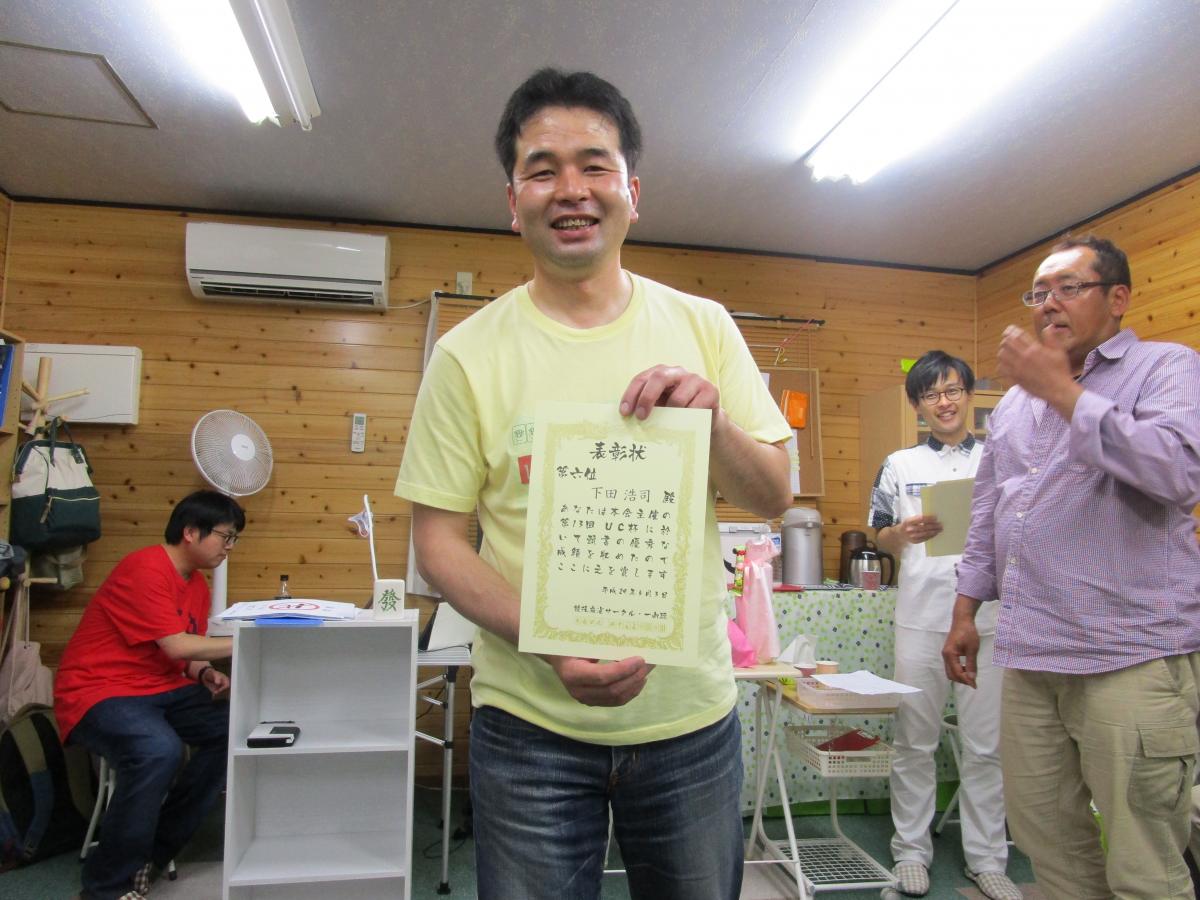 表彰状
第六位
下田 浩司 殿
あなたは本会主催の
第13回 UC杯に於
いて頭書の優秀な
成績を収めたので
ここに之を賞します
平成29年6月3日
發